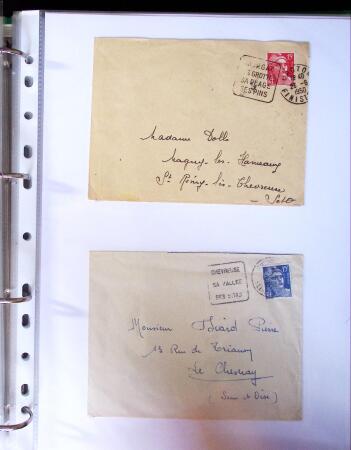 MORGAT
SES GROTTES
SA PLAGE
SES PINS
1950
FINIST
Madame Dolle
Magny-les-Hameaux
St Rémy-lès-Chevreuse
S.et.O
CHEVREUSE
SA VALLEE
SES SITES
Monsieur Thiard Pierre
13 Rue de Trianon
Le Chesnay
(Seine et Oise)